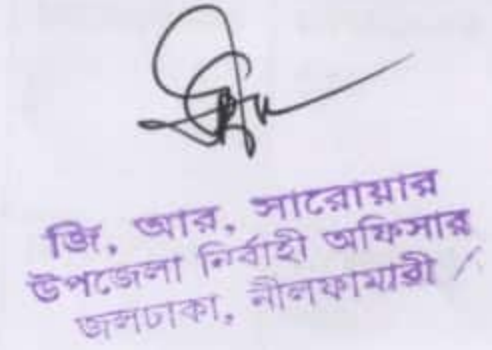 জি, আর, সারোয়ার
উপজেলা নির্বাহী অফিসার
জলঢাকা, নীলফামারী